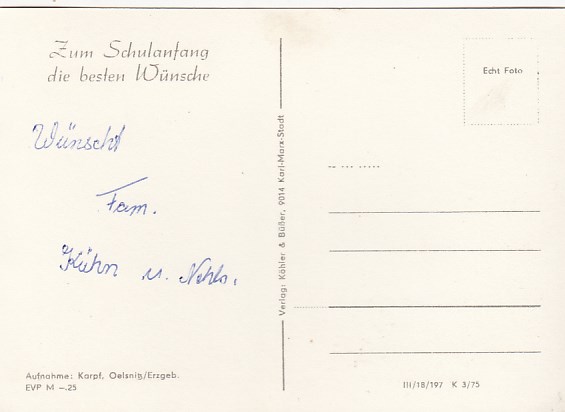 Zum Schulanfang
die besten Wünsche
Wünscht
Fam.
Kühn u.
Aufnahme: Karpf, Oelsnitz/Erzgeb.
EVP M –.25
Verlag: Köhler & Büßer, 9014 Karl-Marx-Stadt
Echt Foto
III/18/197 K 3/75